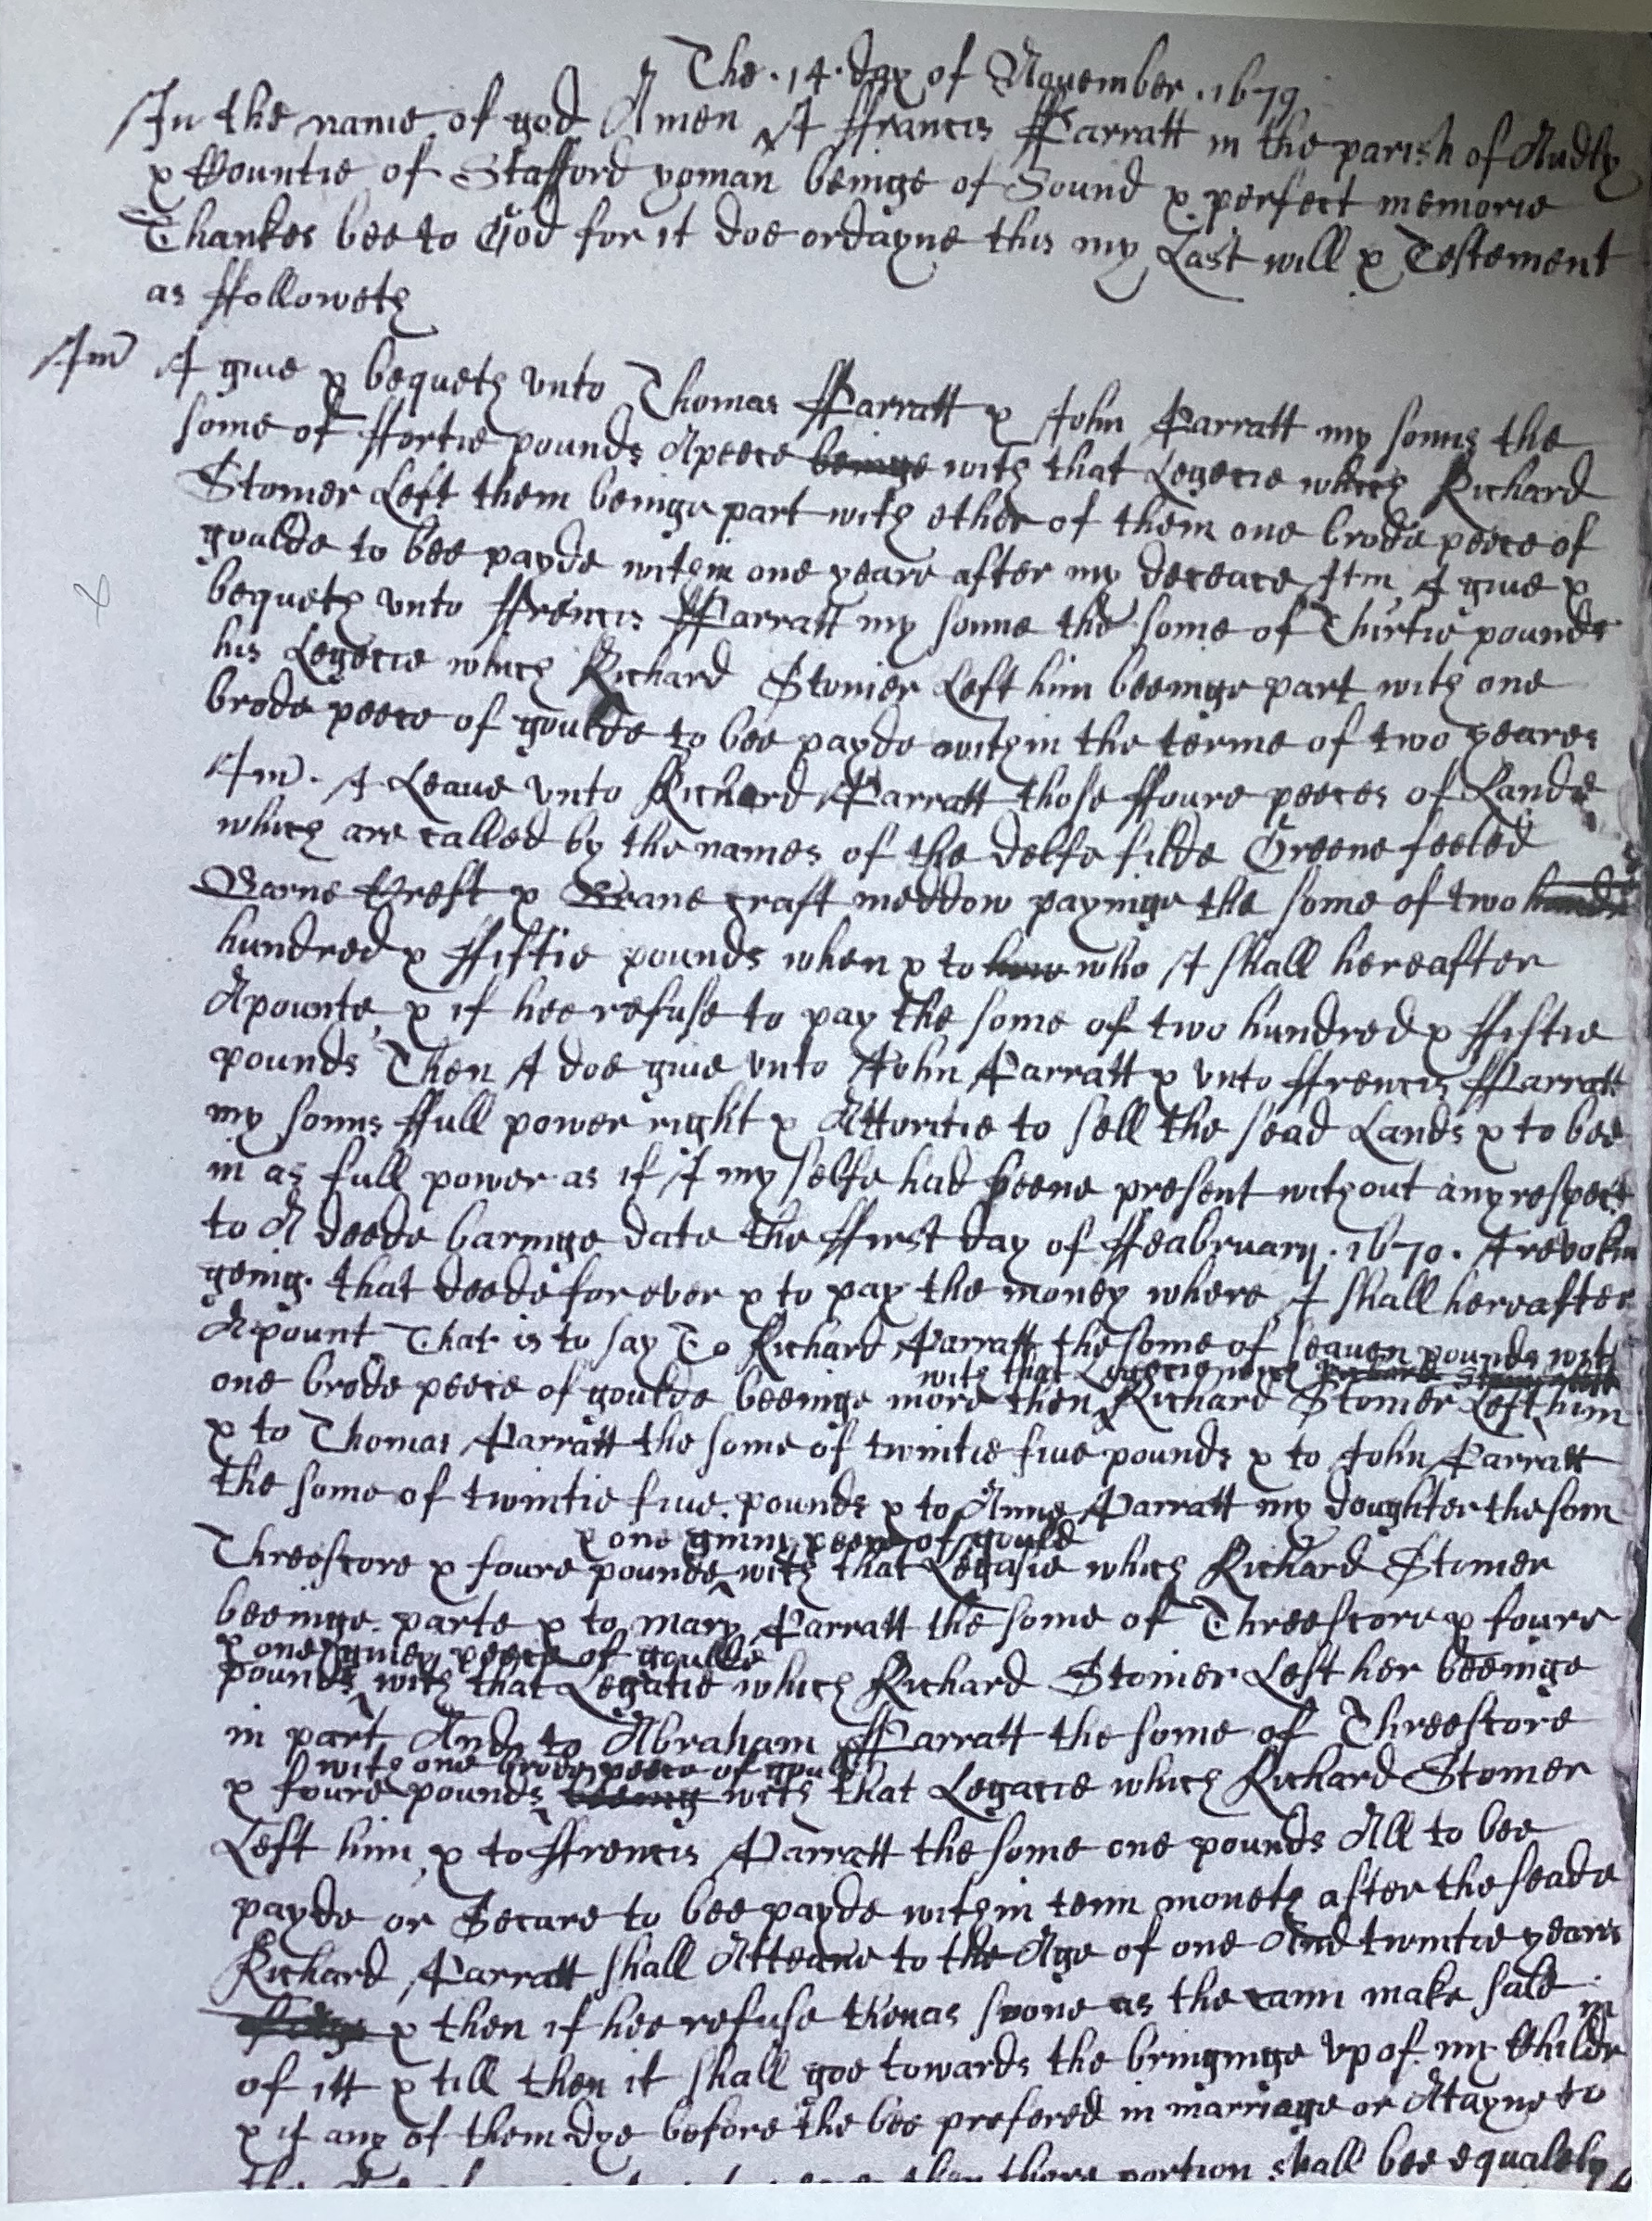 The . 14 . day of Nouember . 1679.
In the name of god Amen I ffrancis Parratt in the parish of Audly
& Countie of Stafford yoman beinge of Sound & perfect memorie
Thankes bee to God for it doe ordayne this my Last will & Testement
as ffolloweth
Itm I giue & bequeth vnto Thomas Parratt & John Parratt my sonns the
some of ffortie pounds Apeece beinge with that Legecie which Richard
Stonier Left them beinge part with ether of them one brode peece of
goulde to bee payde within one yeare after my deceace Itm I giue &
bequeth vnto ffrencis Parratt my sonne the some of Thirtie pounds
his Legecie which Richard Stonier Left him beeinge part with one
brode peece of goulde to bee payde within the terme of two yeares
Itm . I Leaue vnto Richard Parratt those ffoure peeces of Lande
which are called by the names of the delfe filde Greene feeled
Barne Croft & Crane craft meddow payinge the some of two
hundred & ffiftie pounds when & to who I shall hereafter
Apounte, & if hee refuse to pay the some of two hundred & ffiftie
pounds Then I doe giue vnto John Parratt & vnto ffrencis Parratt
my sonns ffull power right & Attoritie to sell the sead Lands & to bee
in as full power as if I my selfe had beene present without any respect
to A deede baringe date the ffirst day of ffeabruary . 1670 . I revokin
geing that deede for ever & to pay the money where I shall hereafter
Apount That is to say To Richard Parratt the some of seauen pounds with
with that Legecie which Richard Stonier Left
one brode peece of goulde beeinge more then Richard Stonier Left him
& to Thomas Parratt the some of twintie fiue pounds & to John Parratt
the some of twintie fiue pounds & to Anne Parratt my doughter the som
& one giny peece of gould
Threescore & foure pounds with that Legasie which Richard Stonier
beeinge parte & to mary Parratt the some of Threescore & foure
& one giney peece of goulde
pounds with that Legatie which Richard Stonier Left her beeinge
in part And to Abraham Parratt the some of Threescore
with one brode peece of gould
& foure pounds beeing with that Legacie which Richard Stonier
Left him & to ffrencis Parratt the some one pounds All to bee
payde or Secure to bee payde within tenn moneth after the seade
Richard Parratt shall Atteane to the Age of one And twintie years
& then if hee refuse then as soone as the cann make sale
of itt & till then it shall goe towards the bringinge vp of my Childr
& if any of them dye before the bee prefered in marriage or Atayne to
then there portion shall bee equalely